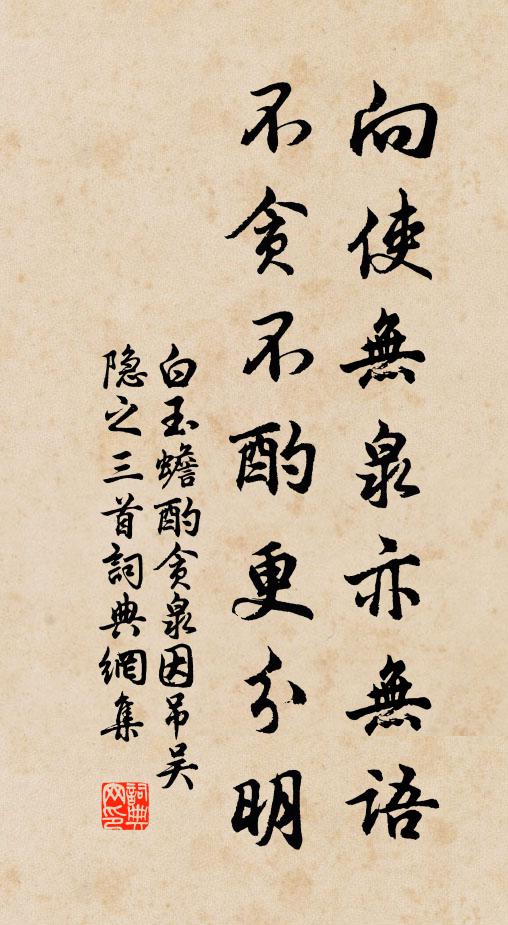 向使無泉亦無語
不贪不酌更分明
白玉蟾酌贪泉因吊吴
隐之三首詞典網集
詞典
网印